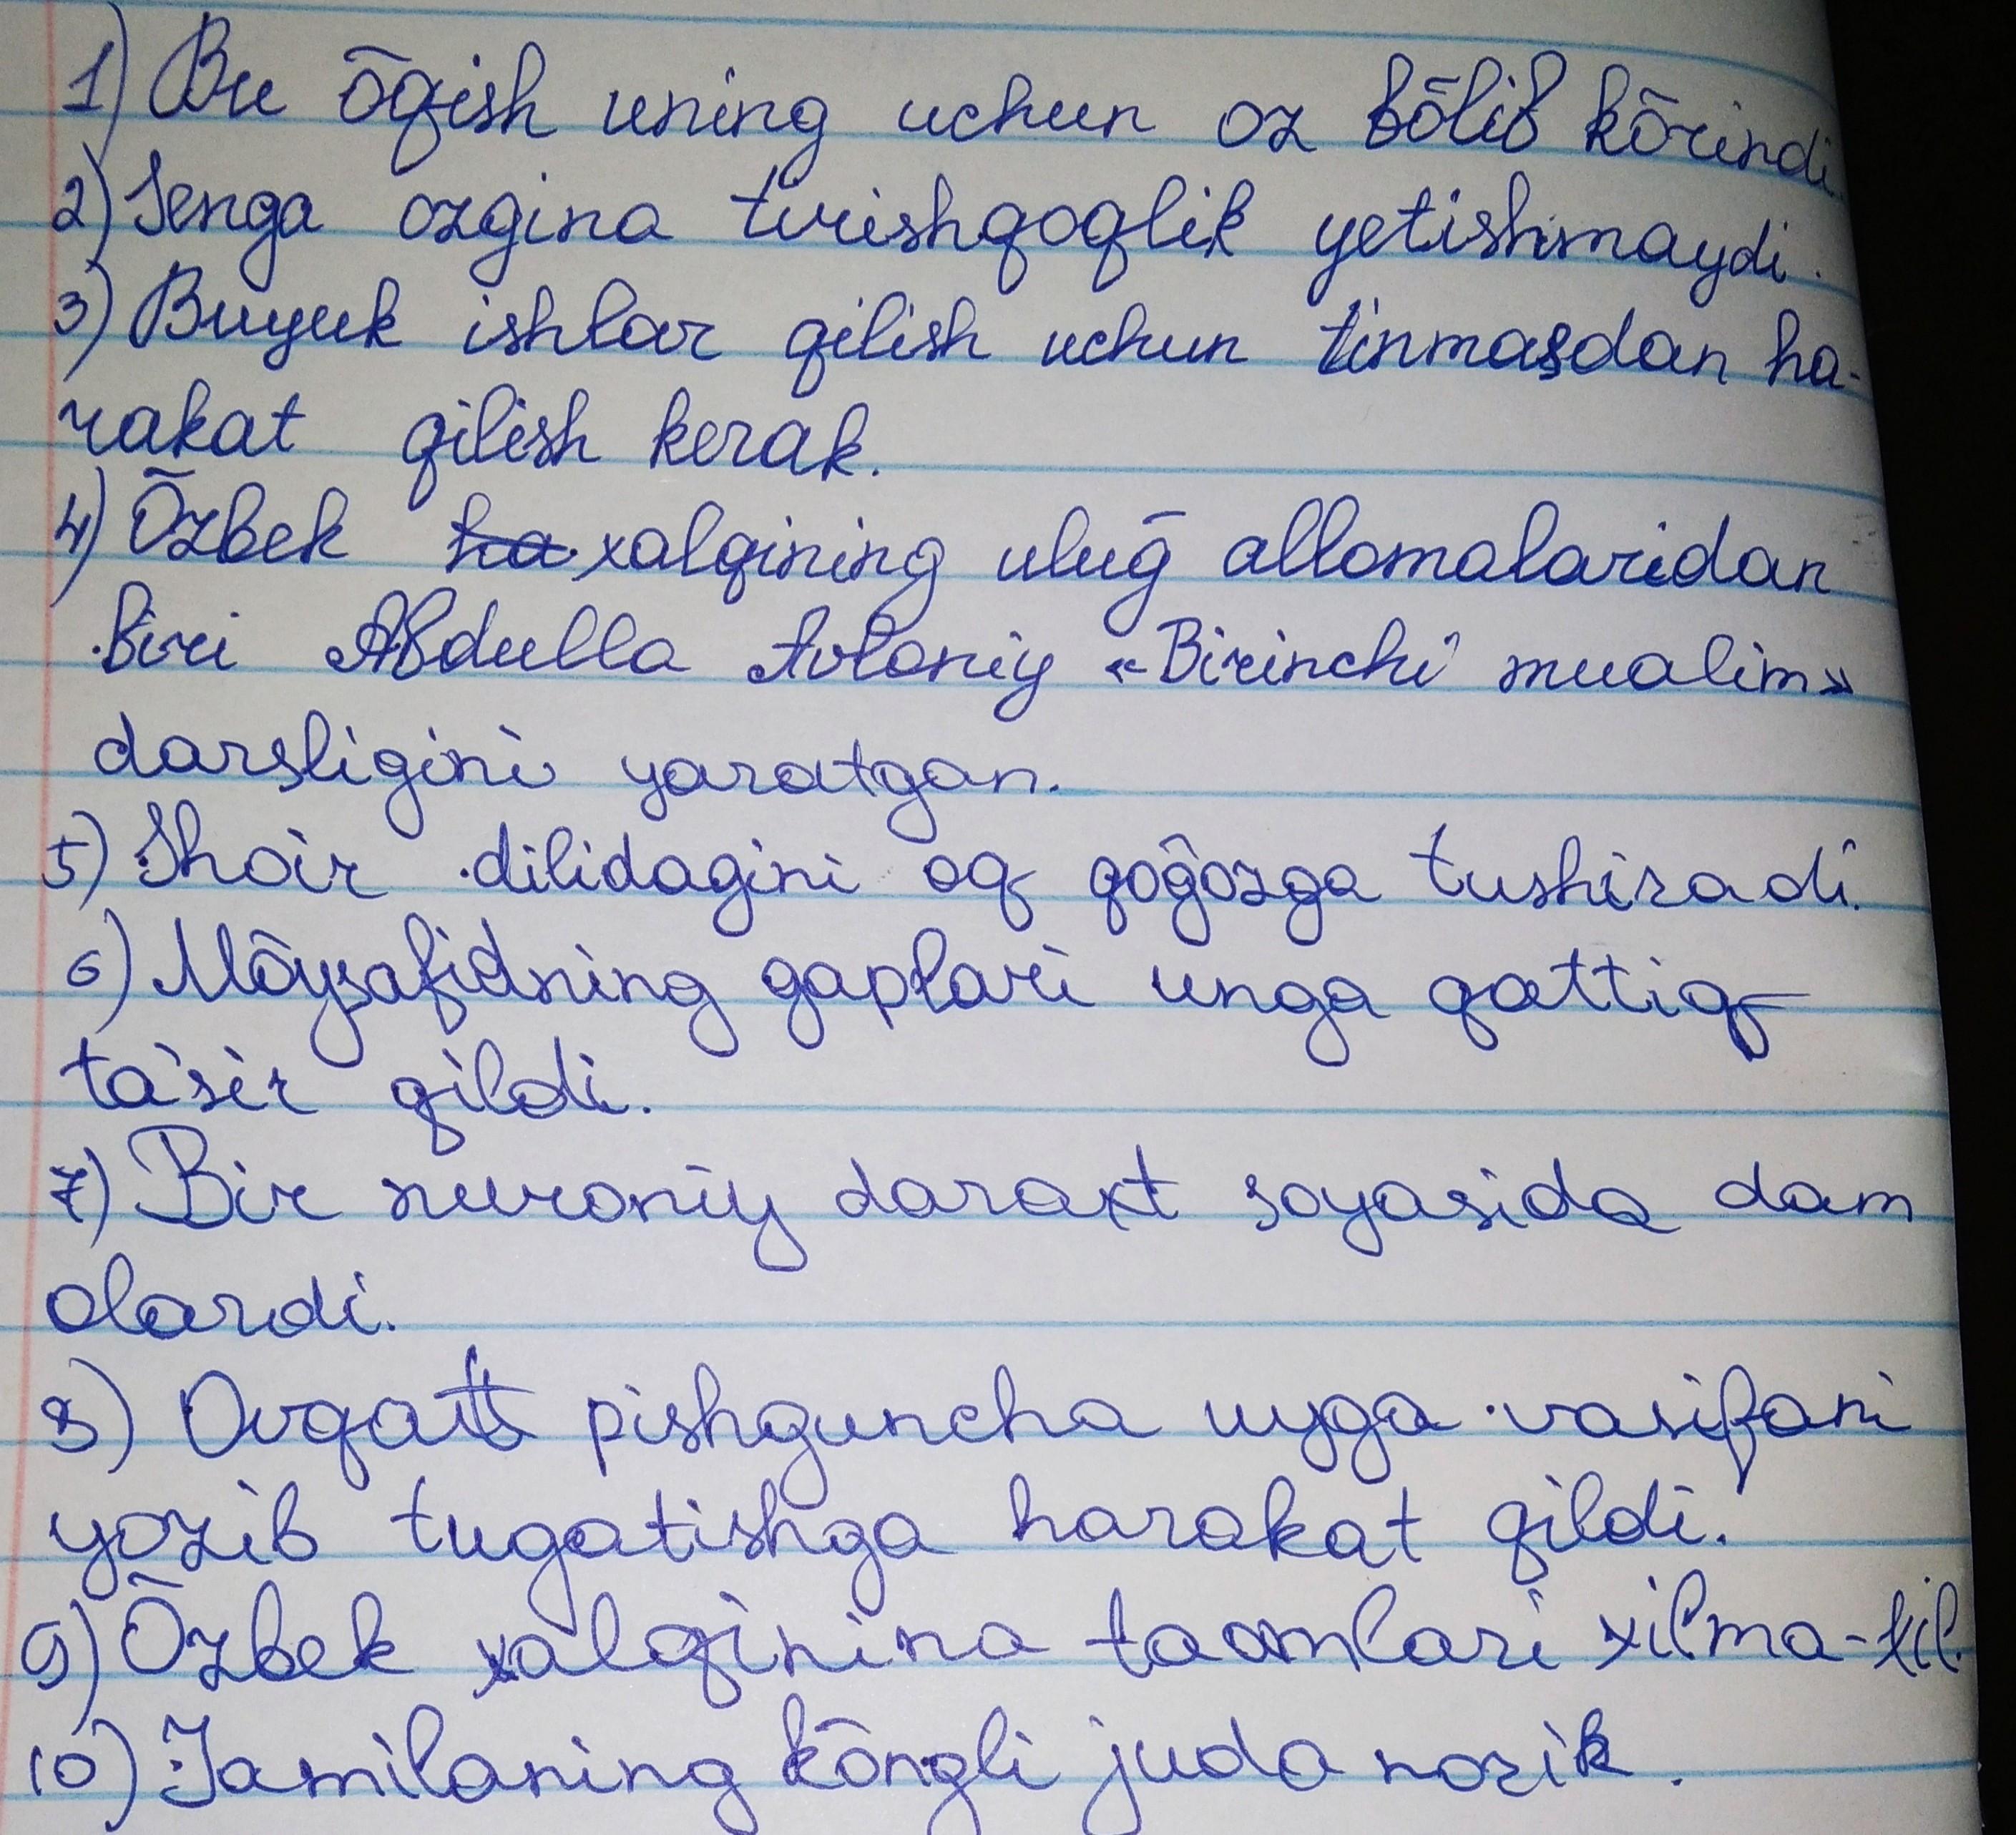 1) Bu ōqish uning uchun oz bōlib kōrindi.
2) Senga ozgina tirishqoqlik yetishmaydi.
3) Buyuk ishlar qilish uchun tinmasdan ha-
rakat qilish kerak.
4) Ōzbek ha xalqining uluḡ allomalaridan
biri Abdulla Avloniy «Birinchi mualim»
darsligini yaratgan.
5) Shoir dilidagini oq qoĝozga tushiradi.
6) Mōysafidning gaplari unga qattiq
ta'sir qildi.
7) Bir nuroniy daraxt soyasida dam
olardi.
8) Ovqat pishguncha uyga vasifani
yozib tugatishga harakat qildi.
9) Ōzbek xalqinina taomlari xilma-xil.
10) Jamilaning kōngli juda nozik.